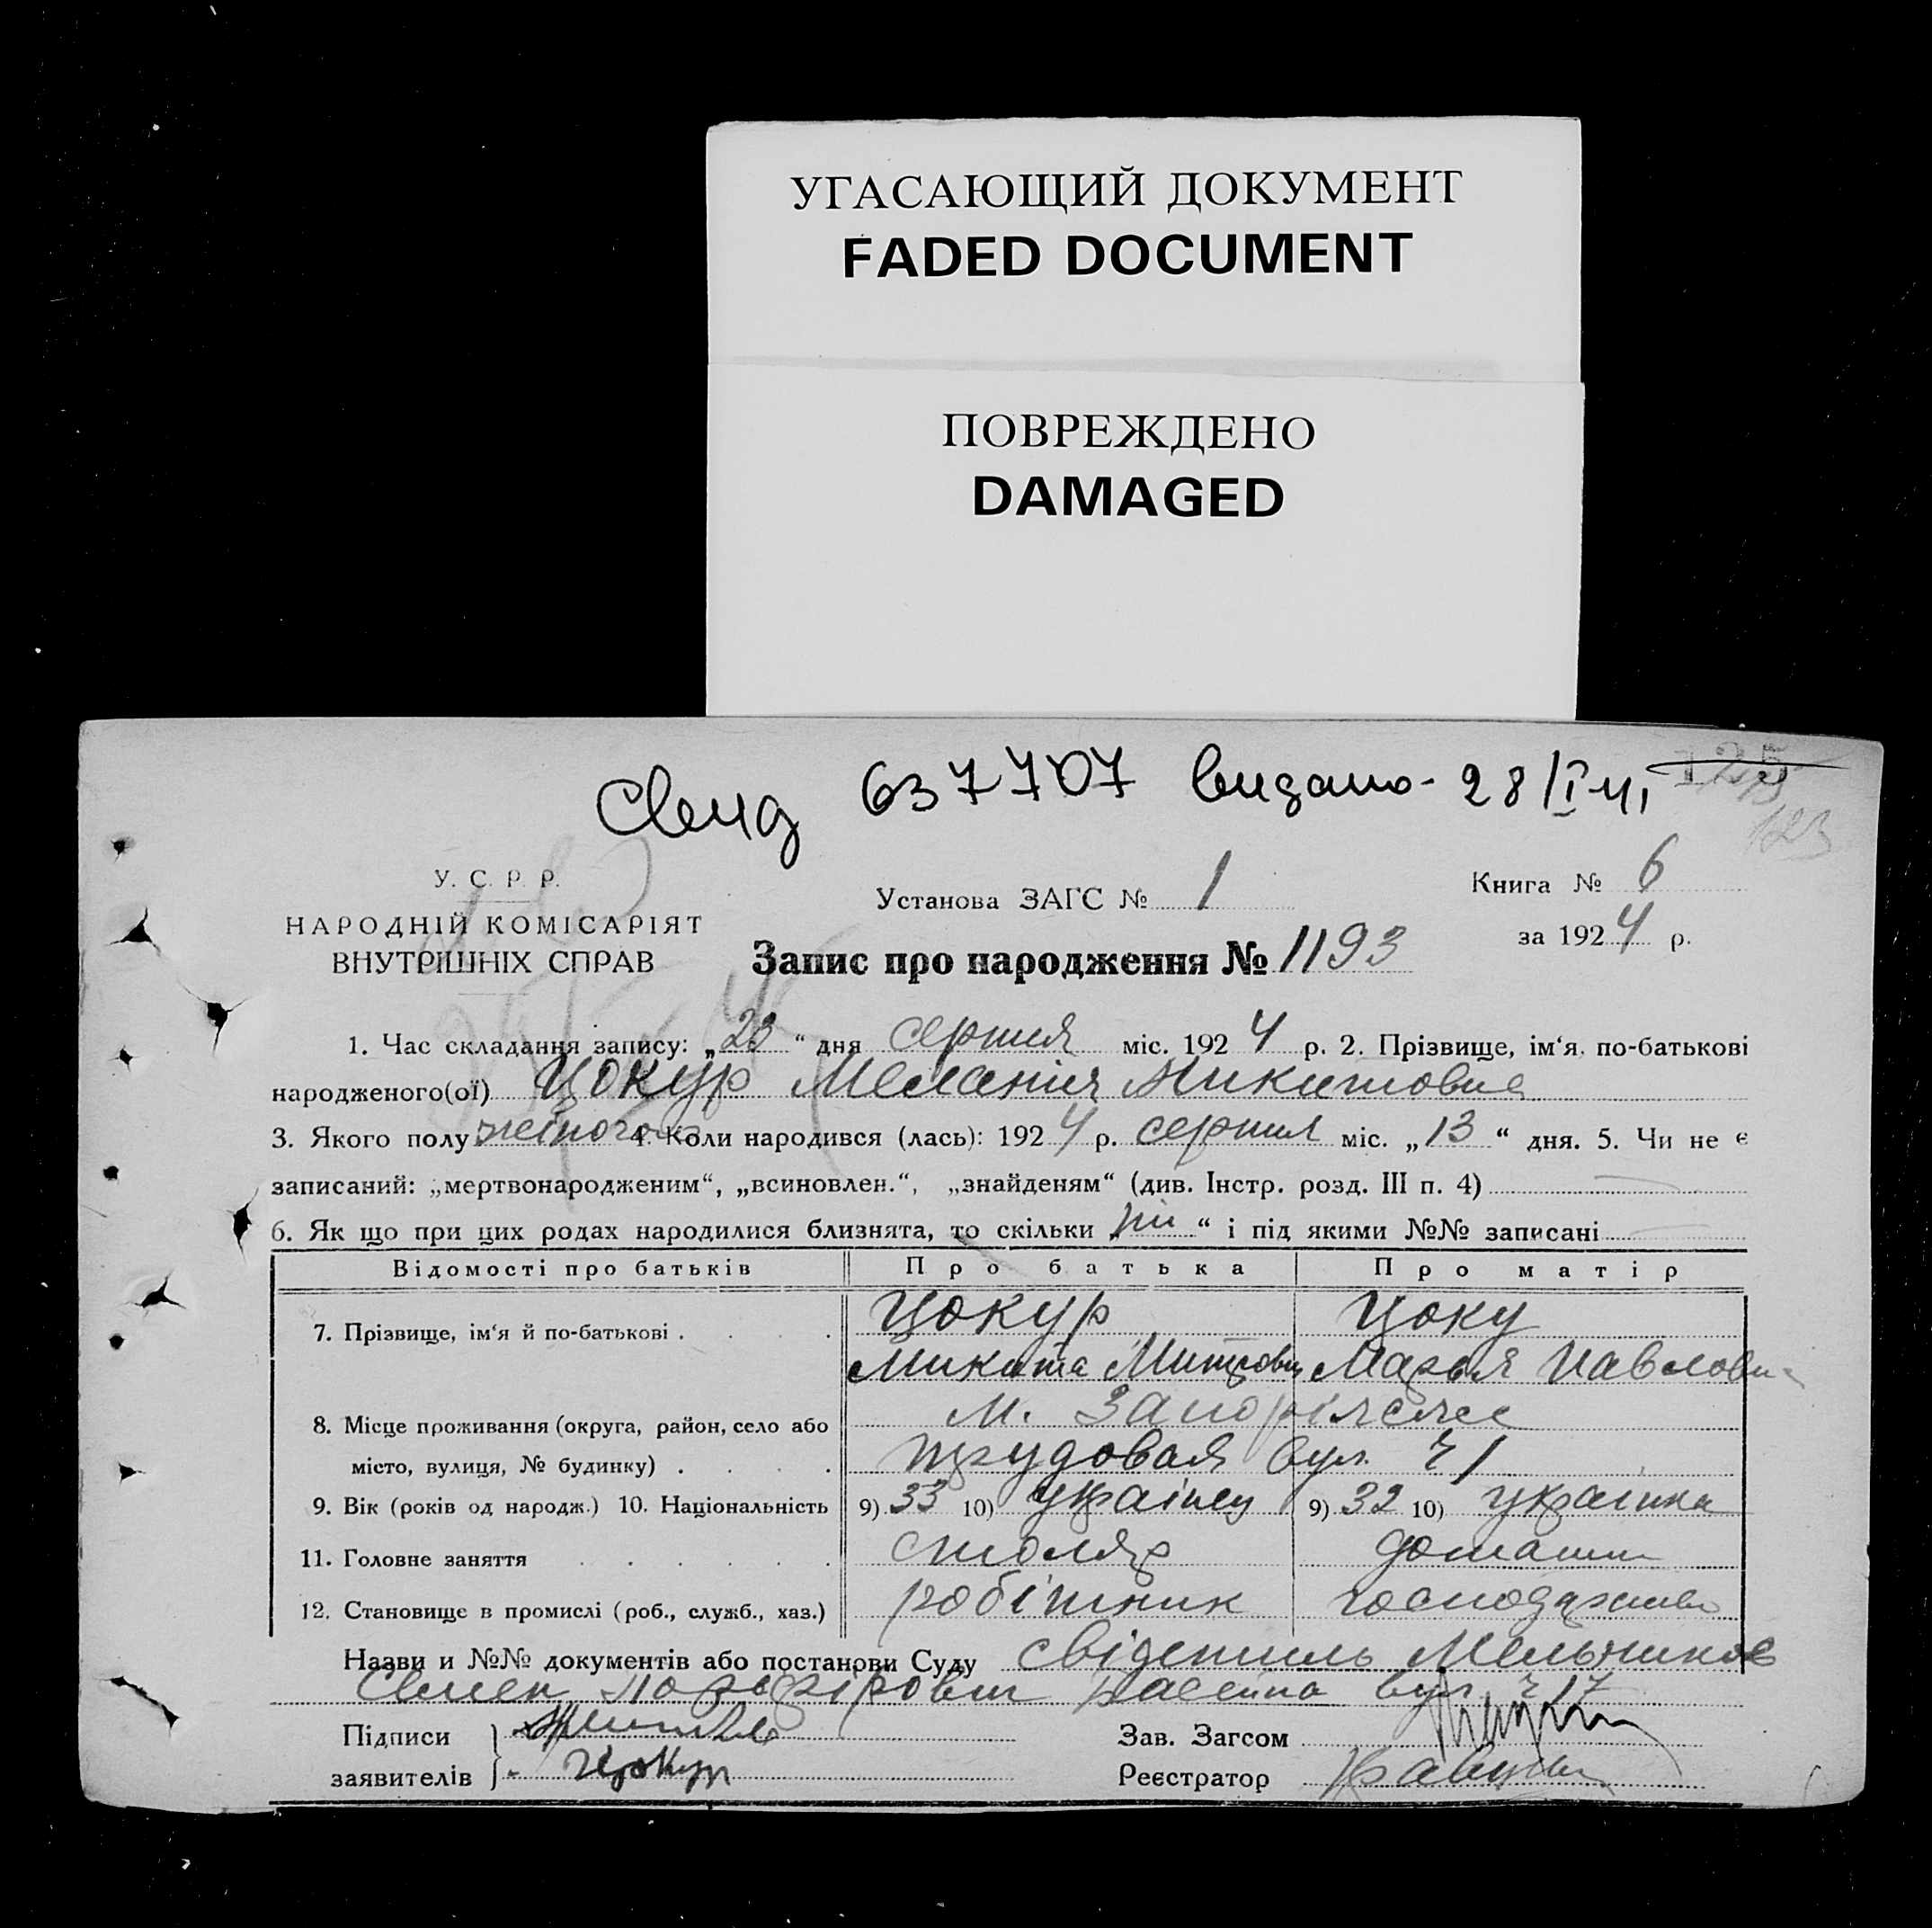 УГАСАЮЩИЙ ДОКУМЕНТ
FADED DOCUMENT
ПОВРЕЖДЕНО
DAMAGED
Свид 637707 видано - 28/I-41
123
У. С. Р. Р.
НАРОДНІЙ КОМІСАРІЯТ
ВНУТРІШНІХ СПРАВ
Установа ЗАГС № 1
Книга № 6
за 1924 р.
Запис про народження № 1193
1. Час складання запису: „23“ дня серпня міс. 1924 р. 2. Прізвище, ім‘я, по-батькові
народженого(ої) Цокур Меланія Микитовна
3. Якого полу жіночого 4. Коли народився (лась): 1924 р. серпня міс. „13“ дня. 5. Чи не є
записаний: „мертвонародженим“, „всиновлен.“, „знайденям“ (див. Інстр. розд. III п. 4)
6. Як що при цих родах народилися близнята, то скільки „ні“ і під якими №№ записані
Відомості про батьків Про батька Про матір
7. Прізвище, ім‘я й по-батькові . . . . Цокур Цоку
Микита Митрович Марья Павловна
8. Місце проживання (округа, район, село або м. Запоріжжє
місто, вулиця, № будинку) . . . . трудовая вул. ч 1
9. Вік (років од народж.) 10. Національність 9) 33 10) українец 9) 32 10) українка
11. Головне заняття . . . . . . столяр домашн
12. Становище в промислі (роб., служб., хаз.) робітник господарство
Назви и №№ документів або постанови Суду свідетиль Мельников
Семен Порфірович вул. ч 17
Підписи
заявителів Цокур
Зав. Загсом
Реєстратор